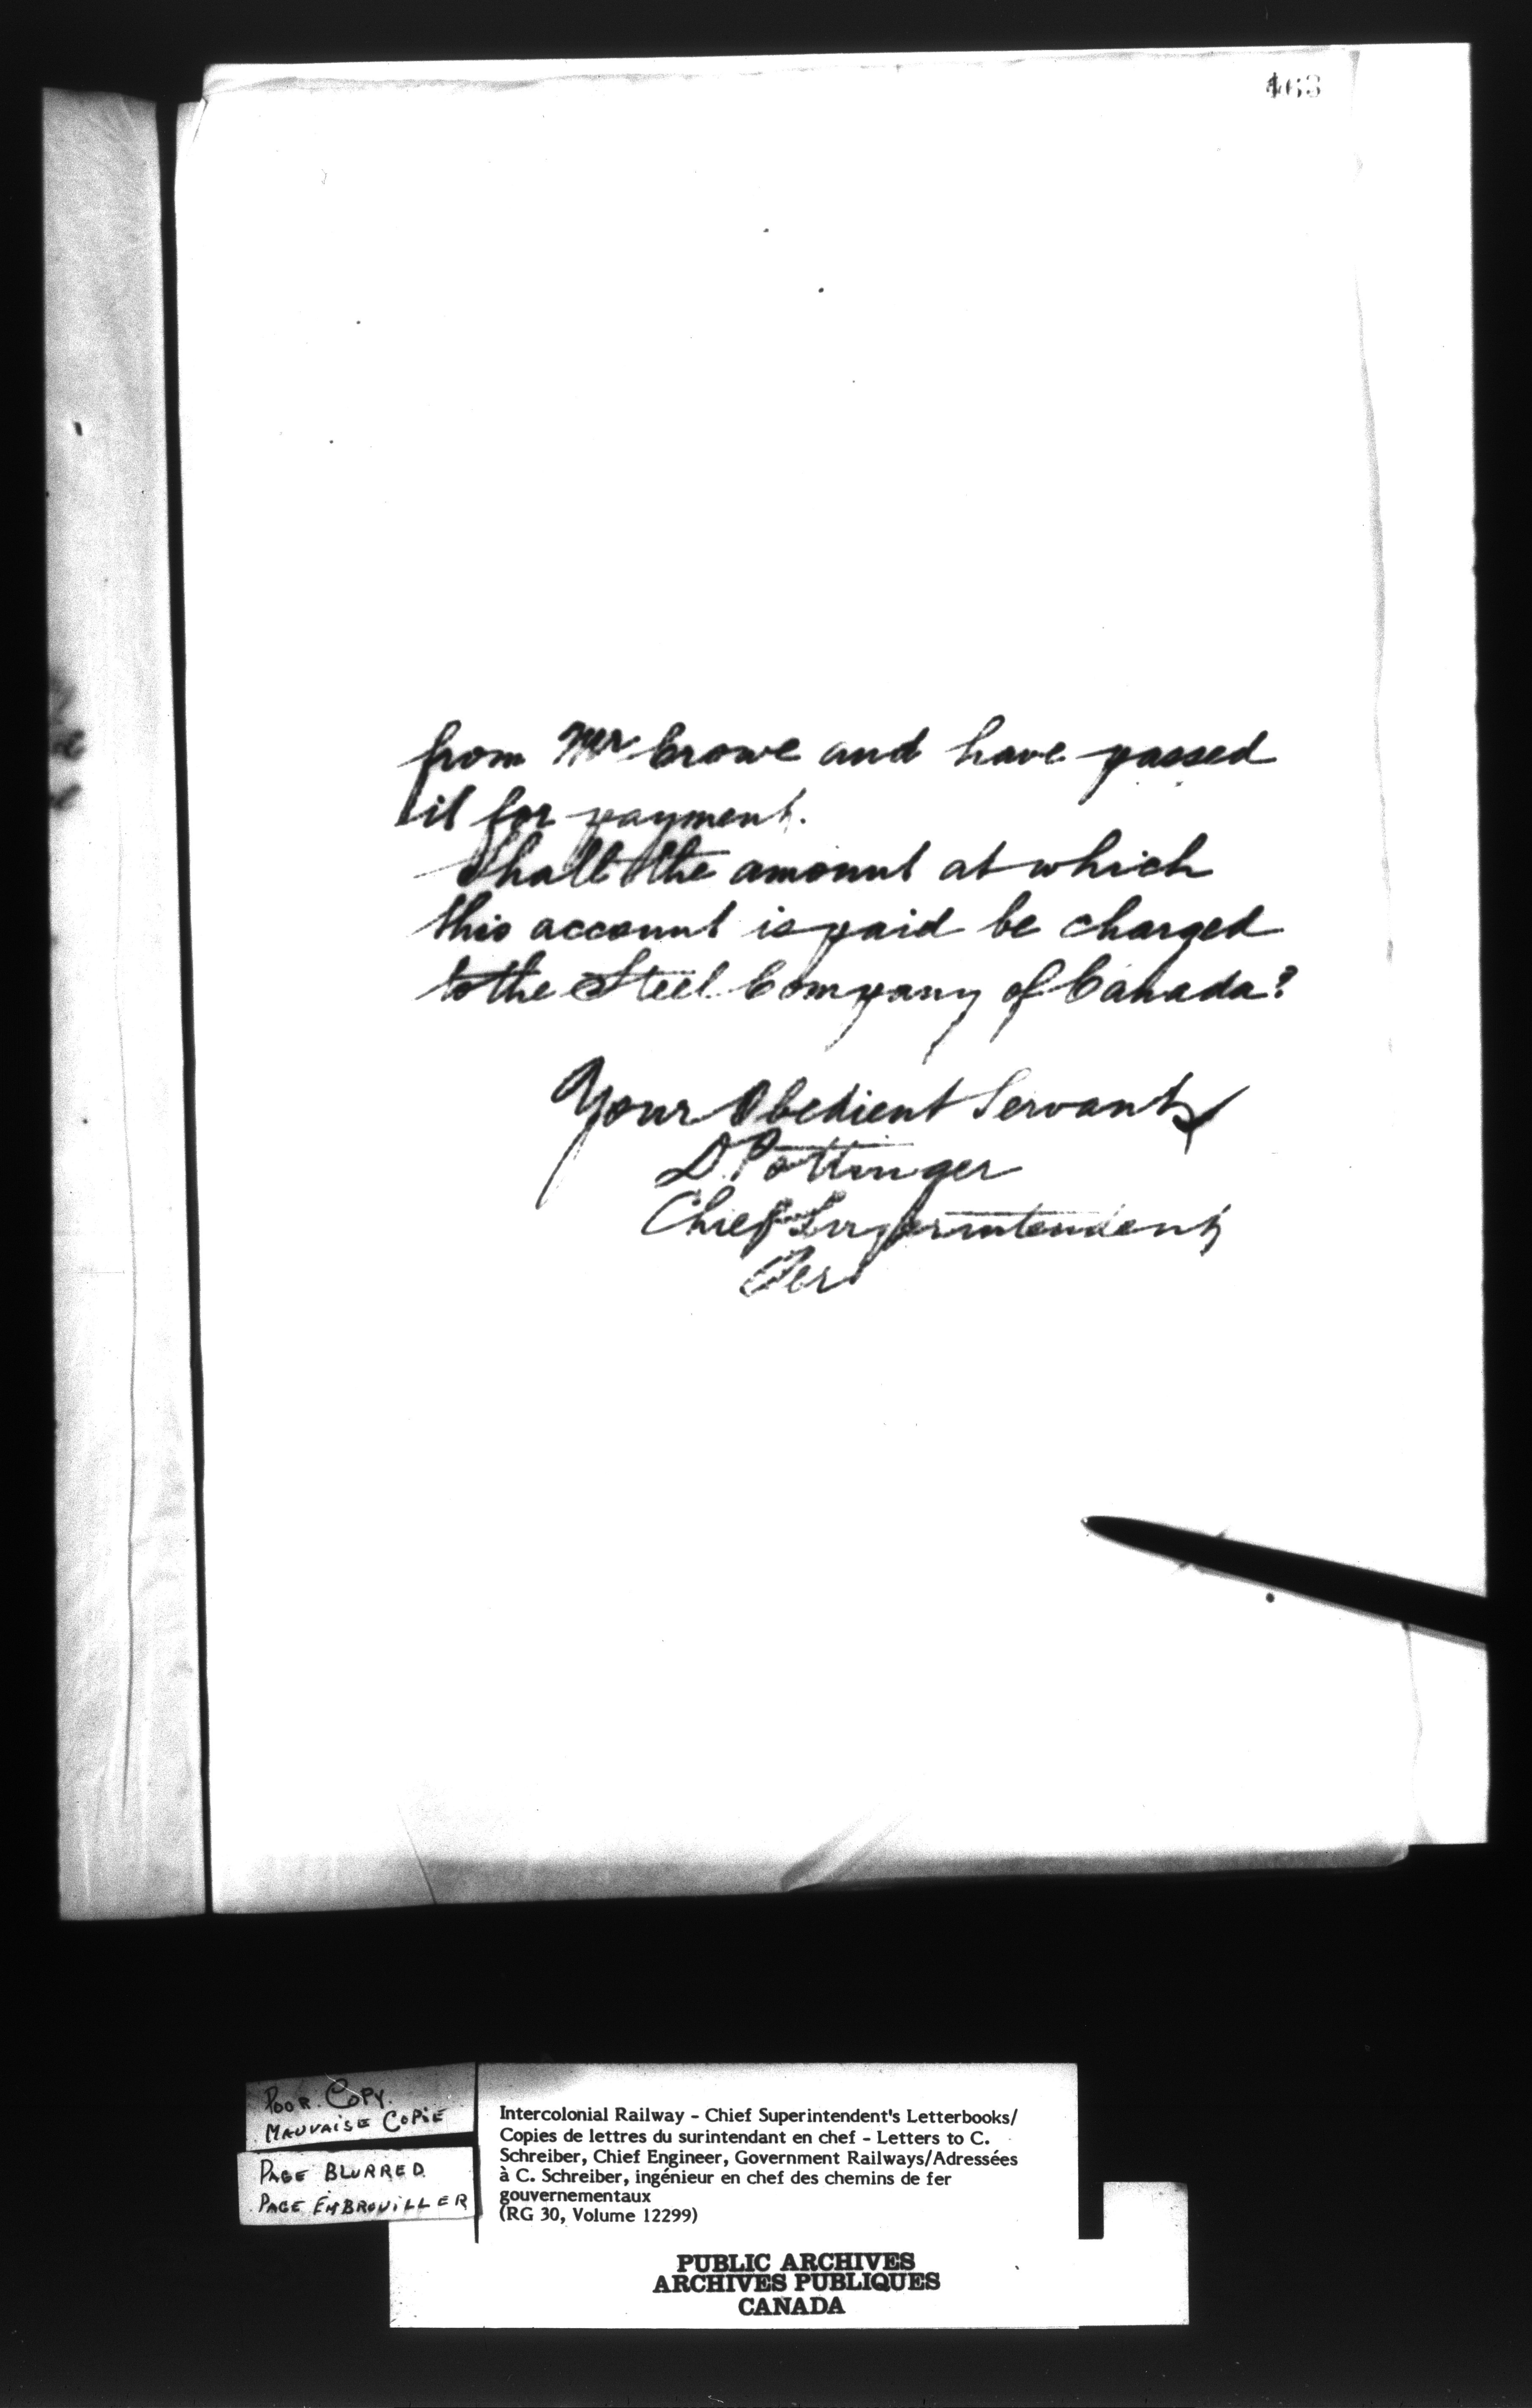 463
from Mr Crowe and have passed
it for payment.
Shall the amount at which
this account is paid be charged
to the Steel Company of Canada?
Your Obedient Servant
D. Pottinger
Chief Superintendent
Per
POOR COPY.
MAUVAISE COPIE
PAGE BLURRED
PAGE EMBROUILLER
Intercolonial Railway - Chief Superintendent's Letterbooks/
Copies de lettres du surintendant en chef - Letters to C.
Schreiber, Chief Engineer, Government Railways/Adressées
à C. Schreiber, ingénieur en chef des chemins de fer
gouvernementaux
(RG 30, Volume 12299)
PUBLIC ARCHIVES
ARCHIVES PUBLIQUES
CANADA